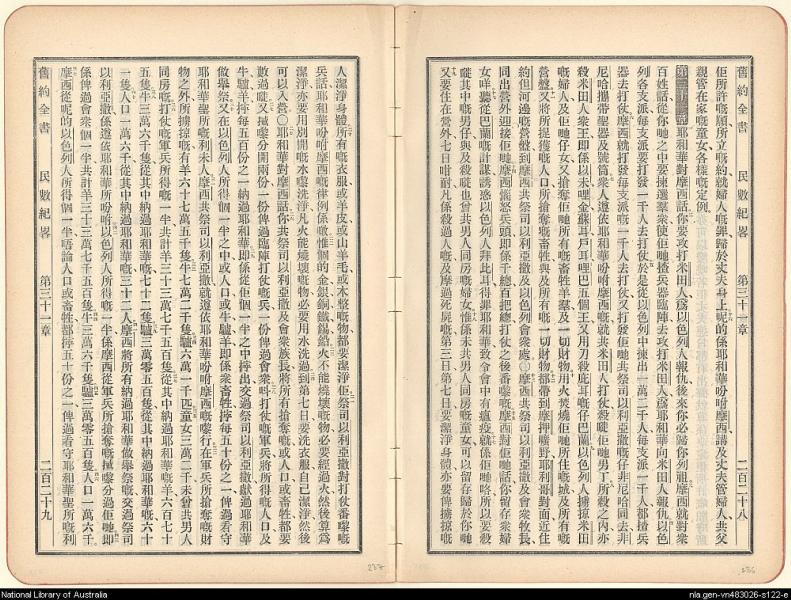 舊約全書 民數紀畧 第三十一章 二百二十八
佢所許嘅願所立嘅約就婦人嘅罪歸於丈夫身上呢的係耶和華吩咐摩西講及丈夫管婦人共父
親管在家嘅童女各樣嘅定例
第三十一章 耶和華對摩西話你要攻打米田人爲以色列人報仇後來你必歸你列祖摩西就對衆
百姓話從你哋之中要揀選羣衆使佢哋揸兵器臨陣去攻打米田人爲耶和華向米田人報仇以色
列各支派每支派要打發一千人去打仗於是從以色列中揀出一萬二千人每支派一千人都揸兵
器去打仗摩西就打發每支派嘅一千人去打仗又打發佢哋共祭司以利亞撒嘅仔非尼哈同去非
尼哈攜帶聖器及號筒衆人遵依耶和華吩咐摩西嘅就共米田人打仗殺曉佢哋男丁所殺之內亦
殺米田人衆王即係以未哩金蘇耳戶耳哩巴五個王又用刀殺庇耳嘅仔巴蘭以色列人擄掠米田
嘅婦人及佢哋仔女又搶奪佢哋所有嘅牲畜羊羣及一切財物用火焚燒佢哋所住嘅城及所有嘅
營盤又將所捉獲嘅人口所搶奪嘅畜牲與及所有嘅一切財物都帶到摩押曠野耶利哥對面近住
約但河邊嘅營盤到摩西共祭司以利亞撒及以色列會衆處○摩西共祭司以利亞撒及會衆牧長
同出營外迎接佢哋摩西惱怒兵頭即係千總百把總打仗之後番嚟嘅摩西對佢哋話你留存衆婦
女咩聽從巴蘭嘅計謀誘惑以色列人拜比耳得罪耶和華致令會中有瘟疫就係佢哋咯所以要殺
曉其中嘅男仔與及殺曉也曾共男人同房嘅婦女惟係未共男人同房嘅童女可以留存歸於你哋
又要住在營外七日咁耐凡係殺過人嘅及摩過死屍嘅第三日第七日要潔淨身體亦要俾擄掠嘅
人潔淨身體所有嘅衣服或羊皮或山羊毛或木整嘅物都要潔淨佢祭司以利亞撒對打仗番嚟嘅
兵話耶和華吩咐摩西嘅律例係噉惟個的金銀銅鐵錫鉛火不能燒壞嘅物必要經過火然後算爲
潔淨亦要用別開嘅水嚟洗淨凡火能燒壞嘅物必要用水洗過到第七日要洗衣服自己潔淨然後
可以入營○耶和華對摩西話你共祭司以利亞撒及會衆族長將所有搶奪嘅或人口或畜牲都要
數過曉又將搣嚟分開兩份一份俾過臨陣打仗嘅兵一份俾過會衆呌打仗嘅軍兵將所得嘅人口及
牛驢羊捽每五百份之一納過耶和華即係從佢個一半之中捽出交過祭司以利亞撒獻過耶和華
做舉祭又在以色列人所得個一半之中或人或牛驢羊即係衆畜牲捽每五十份之一俾過看守
耶和華聖所嘅利未人摩西共祭司以利亞撒就遵依耶和華吩咐摩西嘅嚟行在軍兵所搶奪嘅財
物之外所擄掠嘅有羊六十七萬五千隻牛七萬二千隻驢六萬一千匹童女三萬二千未曾共男人
同房嘅打仗嘅軍兵所得嘅一半共計羊三十三萬七千五百隻從其中納過耶和華嘅羊六百七十
五隻牛三萬六千隻從其中納過耶和華嘅七十二隻驢三萬零五百隻從其中納過耶和華嘅六十
一隻人口一萬六千從其中納過耶和華嘅三十二人摩西將所有納過耶和華做舉祭嘅交過祭司
以利亞撒係遵依耶和華所吩咐以色列人所得嘅一半係摩西從軍兵所搶奪嘅搣嚟分過佢哋即
係俾過會衆個一半共計羊三十三萬七千五百隻牛三萬六千隻驢三萬零五百隻人口一萬六千
摩西從呢的以色列人所得個一半唔論人口或畜牲都捽五十份之一俾過看守耶和華聖所嘅利
舊約全書 民數紀畧 第三十一章 二百二十九
237
236
National Library of Australia
nla.gen-vn483026-s122-e